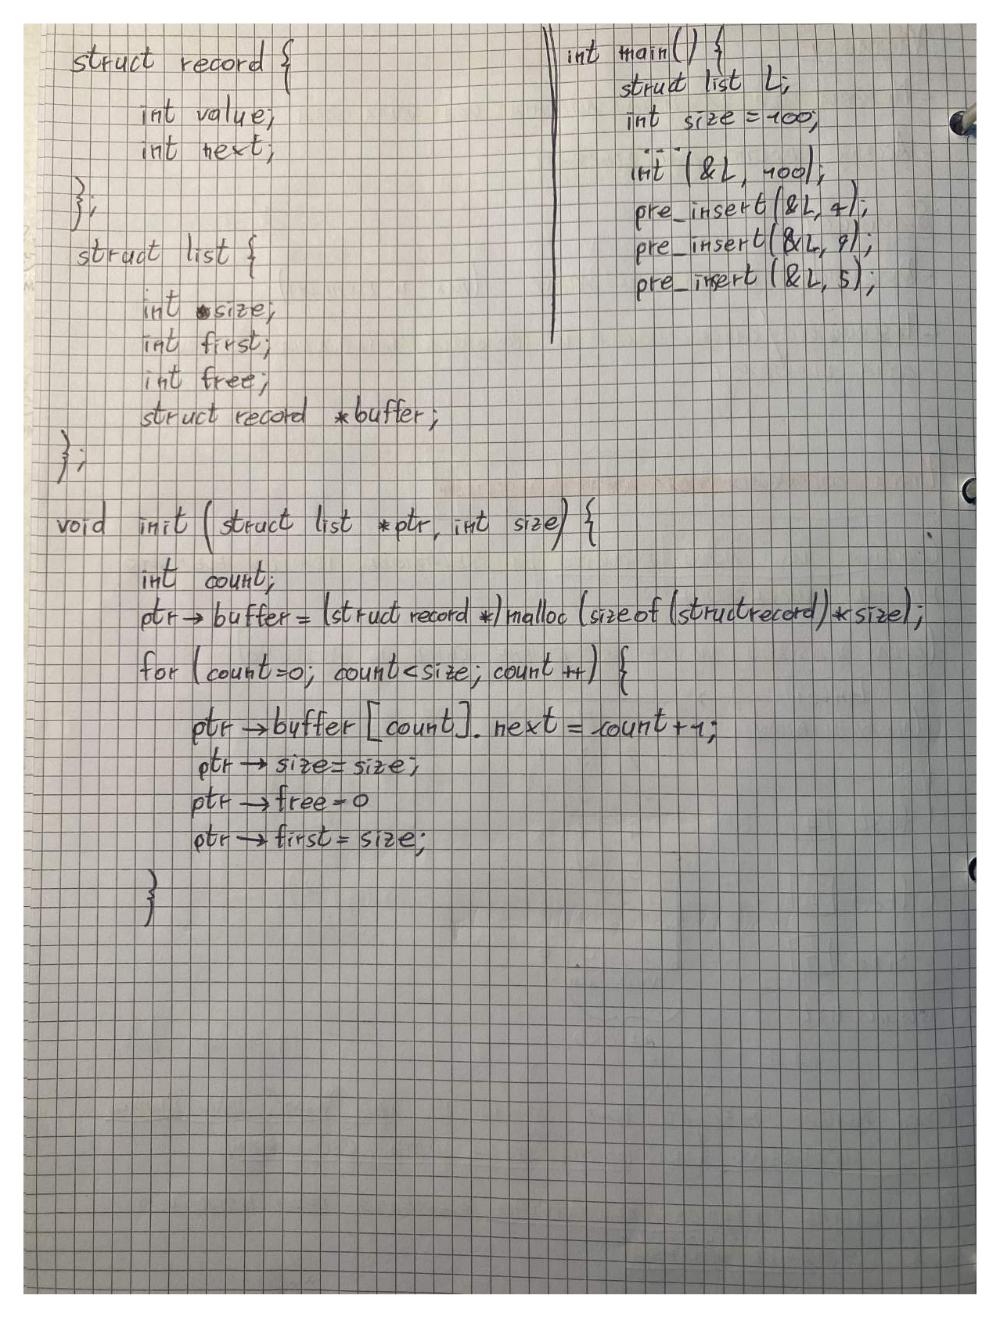 struct record {
int value;
int next;
};
struct list {
int size;
int first;
int free;
struct record *buffer;
};
int main() {
struct list L;
int size = 100;
....
int (&L, 100);
pre_insert(&L, 4);
pre_insert(&L, 9);
pre_insert (&L, 5);
void init (struct list *ptr, int size) {
int count;
ptr → buffer = (struct record *) malloc (sizeof (struct record) * size);
for (count=0; count<size; count ++) {
ptr → buffer [count]. next = count+1;
ptr → size = size;
ptr → free = 0
ptr → first = size;
}